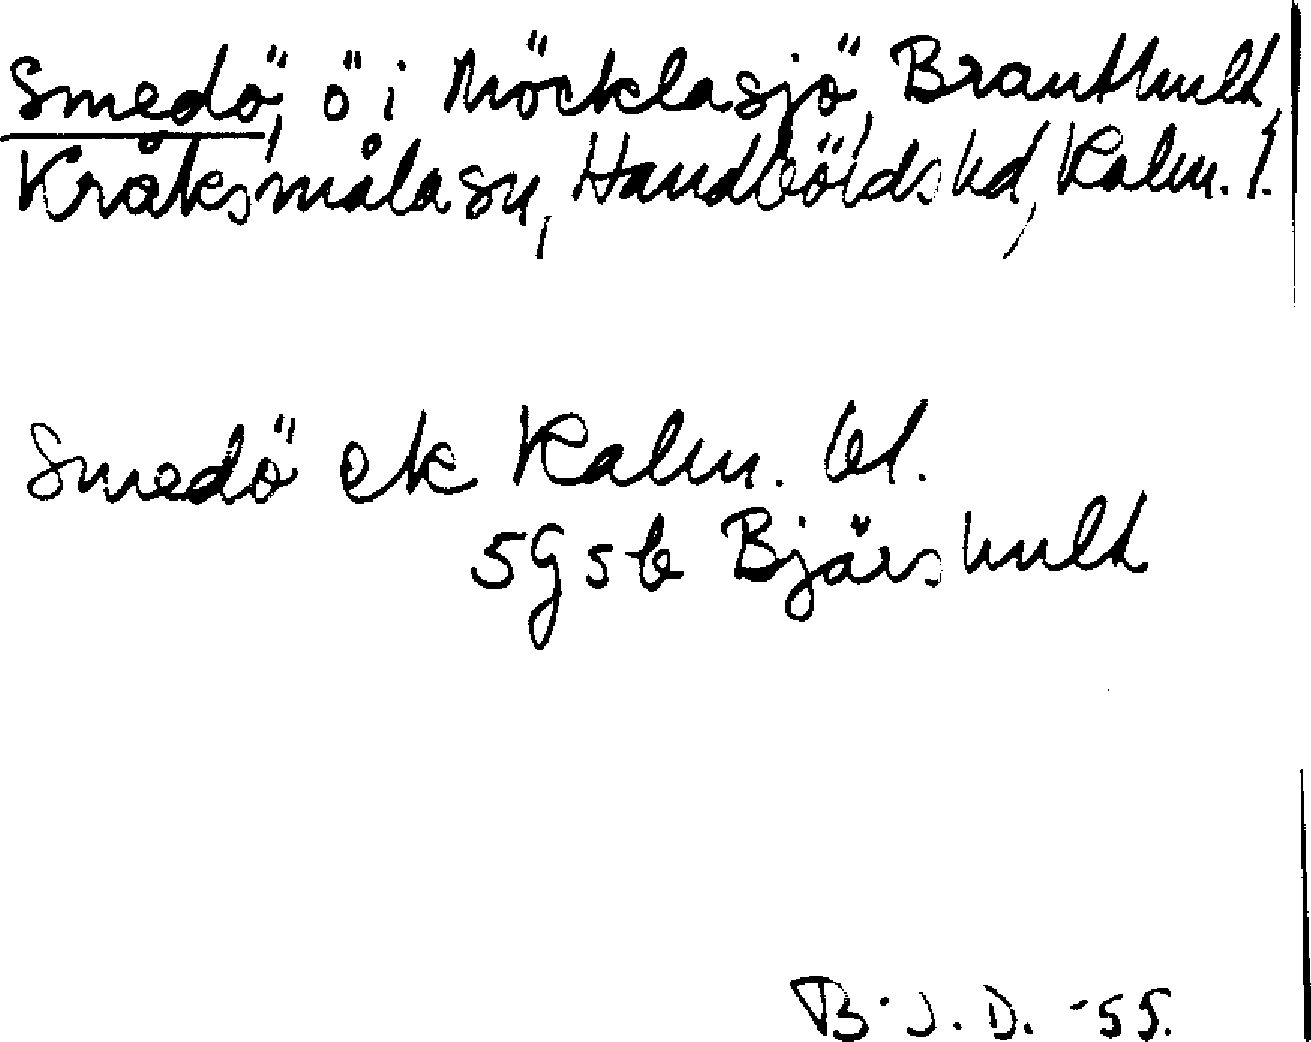 Smedö, ö i Möcklasjö, Branthult,
Kråksmåla sn, Handbörds hd, Kalm. l.
Smedö ek Kalm. bl.
5G5b Bjärshult
B.J.D. -55.